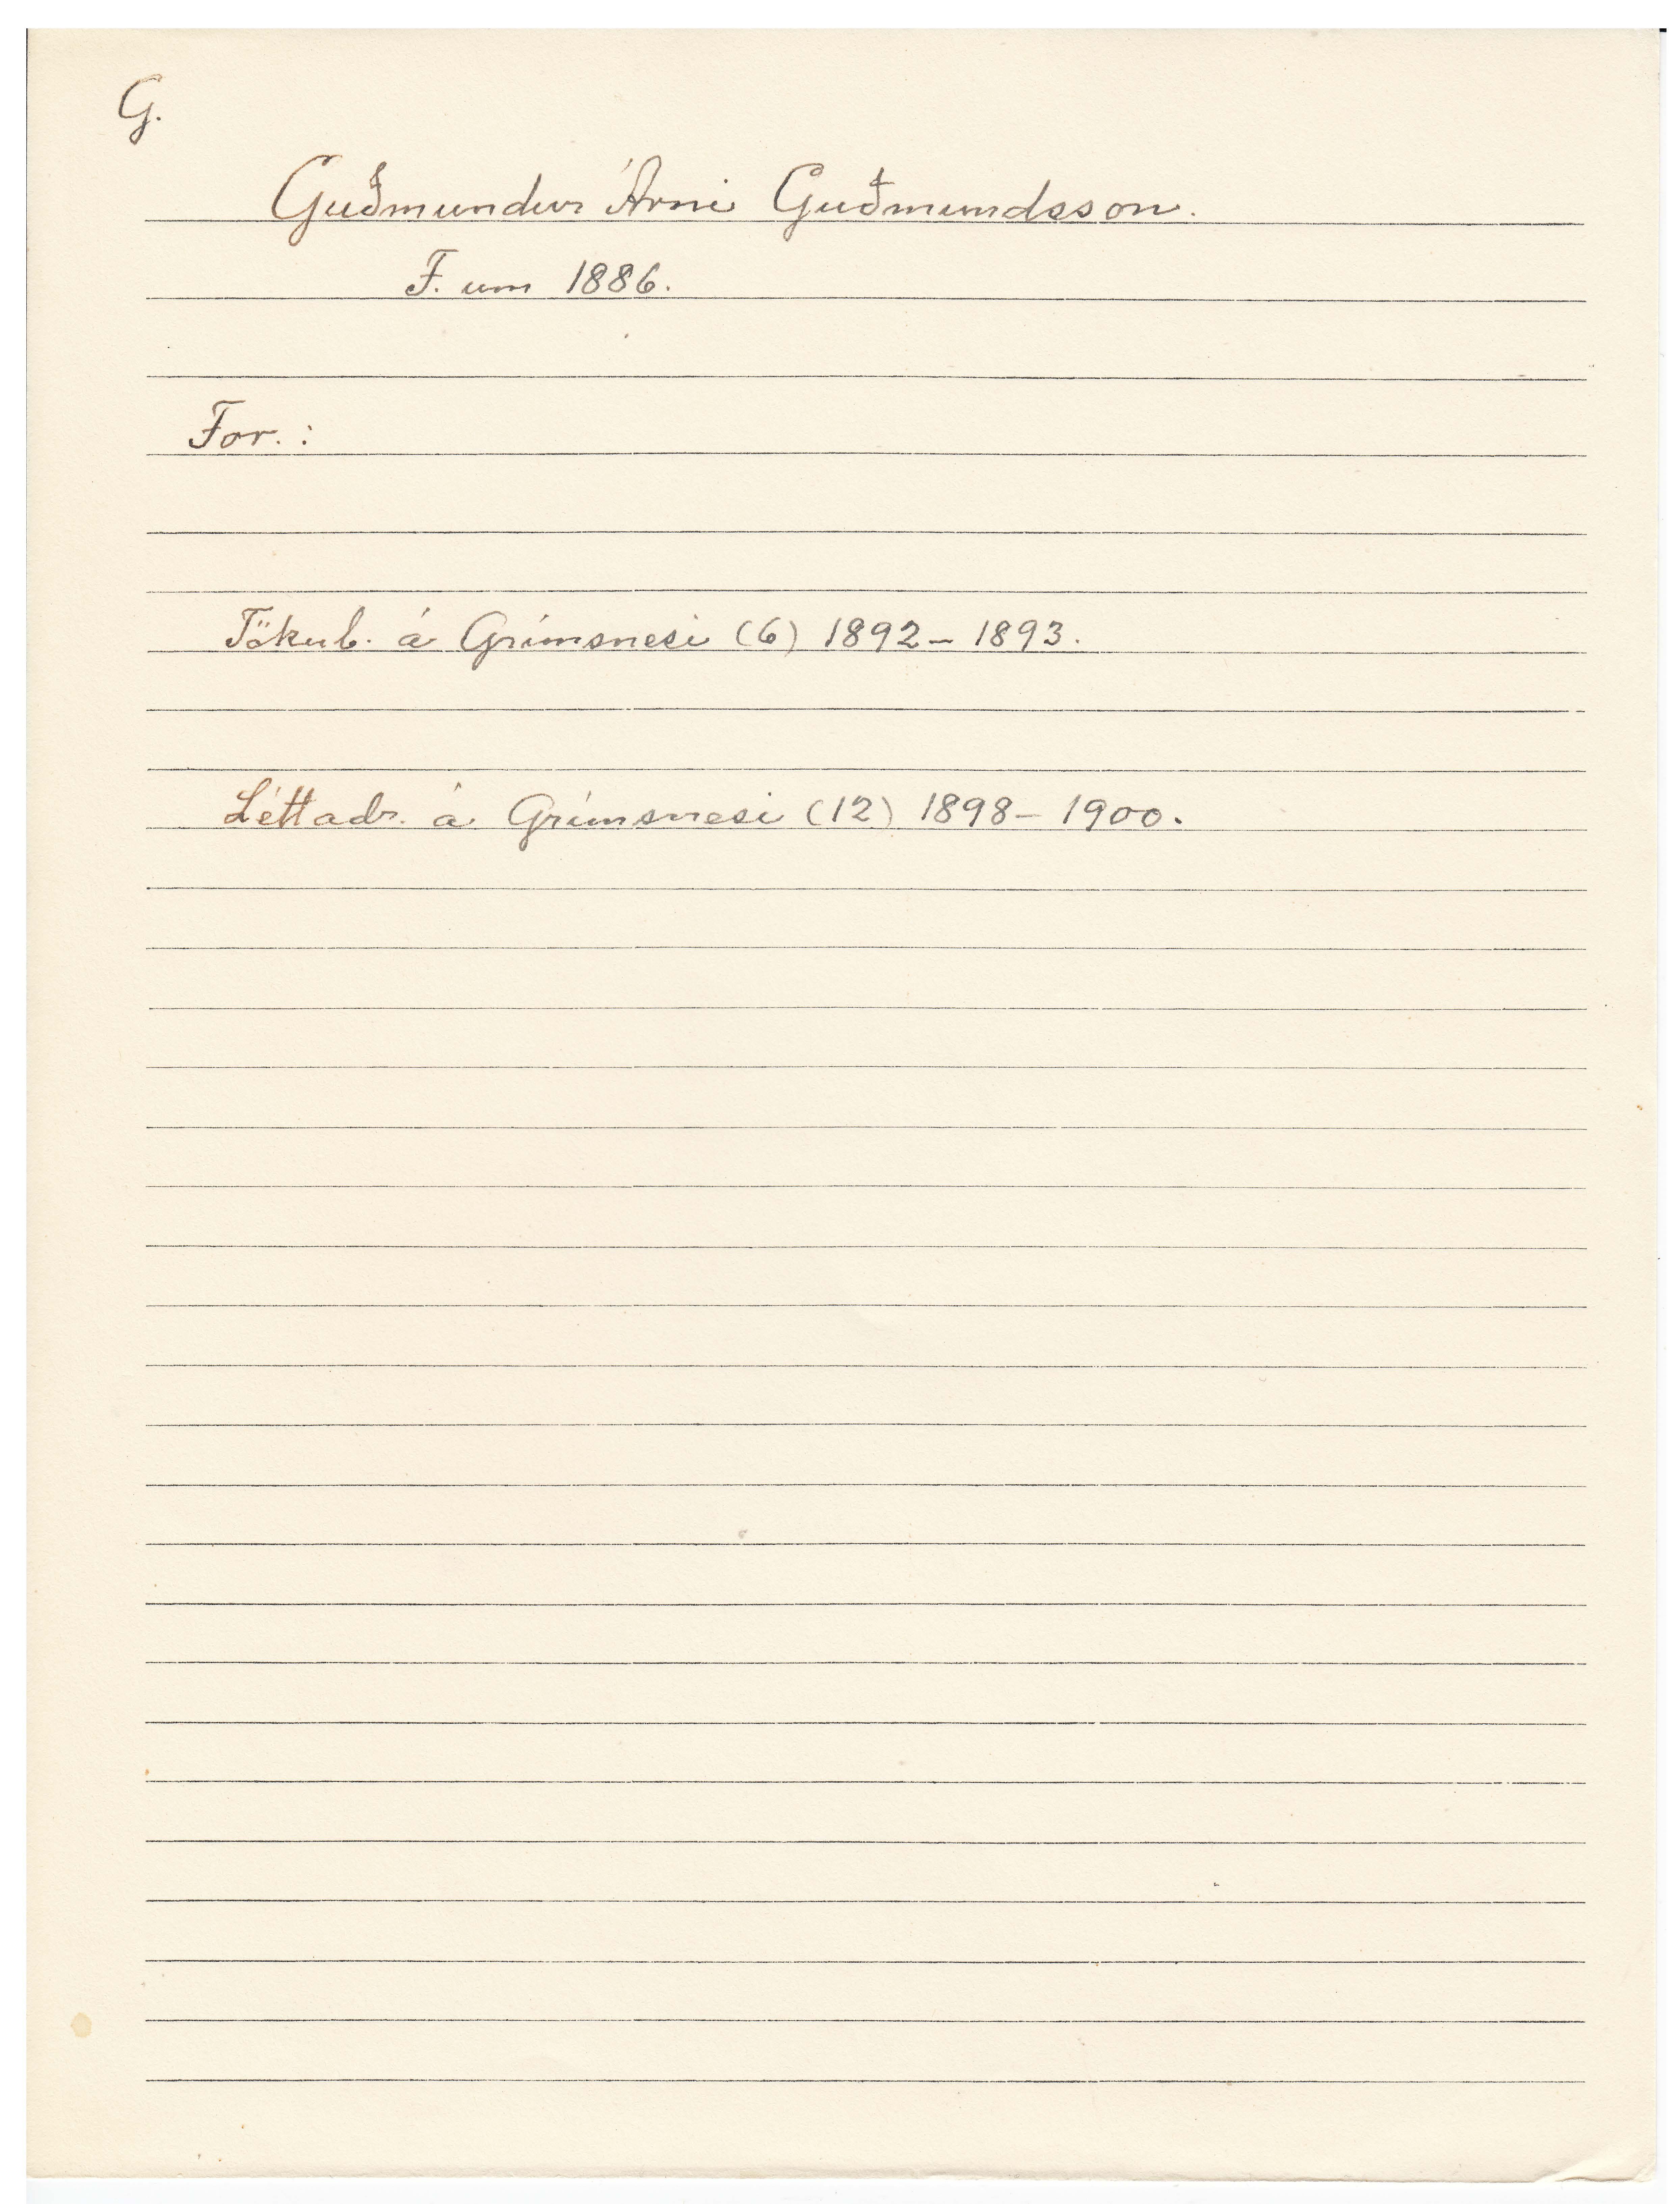 G.
Guðmundur Árni Guðmundsson.
F. um 1886.
For. :
Tökub. á Grímsnesi (6) 1892 – 1893.
Léttadr. á Grímsnesi (12) 1898 – 1900.